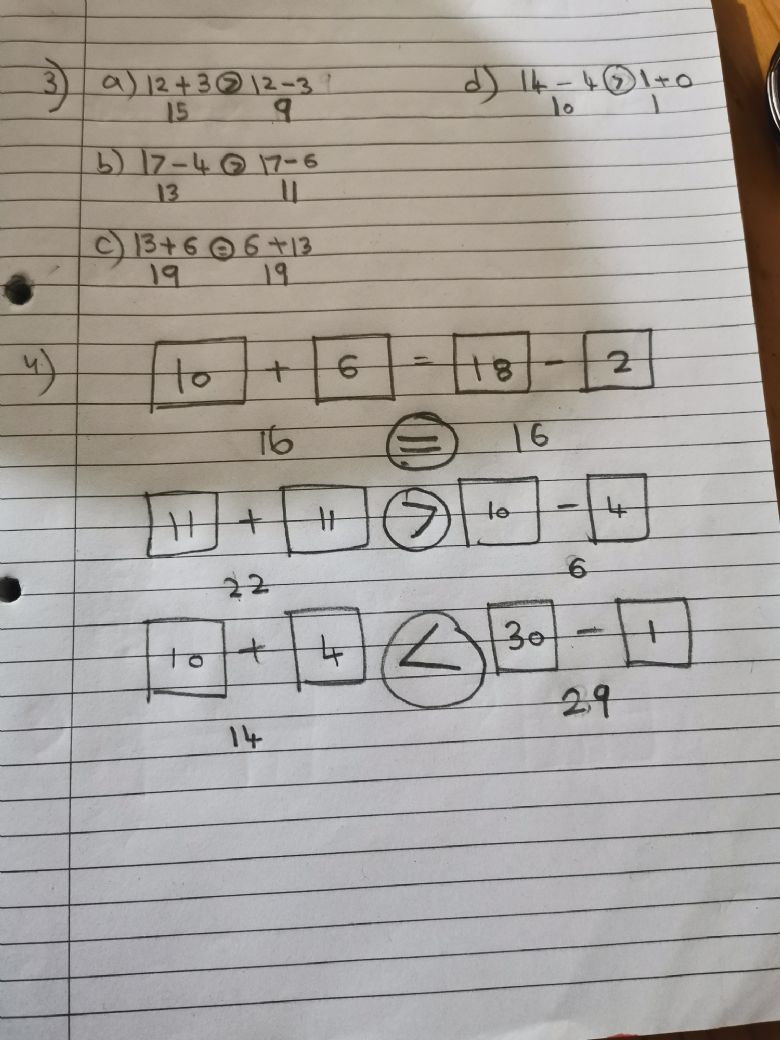 3) a) 12 + 3 > 12 - 3 d) 14 - 4 > 1 + 0
15 9 10 1
b) 17 - 4 > 17 - 6
13 11
c) 13 + 6 = 6 + 13
19 19
4) 10 + 6 = 18 - 2
16 = 16
11 + 11 > 10 - 4
22 6
10 + 4 < 30 - 1
14 29